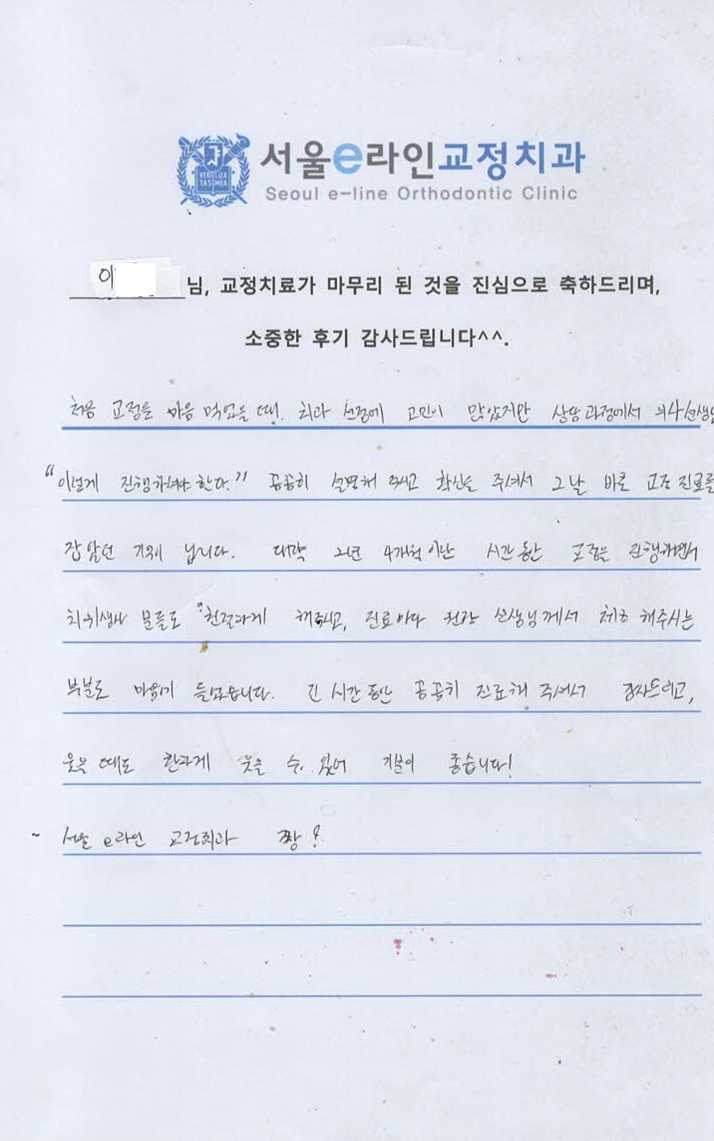 서울e라인교정치과
Seoul e-line Orthodontic Clinic
VERI LUX TAS MEA
이 님, 교정치료가 마무리 된 것을 진심으로 축하드리며,
소중한 후기 감사드립니다^^.
처음 교정을 마음 먹었을 때. 치과 선정에 고민이 많았지만 상담과정에서 의사선생님
"이렇게 진행하셔야 한다." 꼼꼼히 설명해 주시고 확신을 주셔서 그날 바로 교정 진료를
잡았던 기억이 납니다. 대략 2년 4개월이란 시간동안 교정을 진행하면서
치위생사 분들도 친절하게 해주시고, 진료마다 원장 선생님께서 체크 해주시는
부분도 마음에 들었습니다. 긴 시간 동안 꼼꼼히 진료해 주셔서 감사드리고,
웃을 때도 환하게 웃을 수 있어 기분이 좋습니다!
~ 서울 e라인 교정치과 짱!